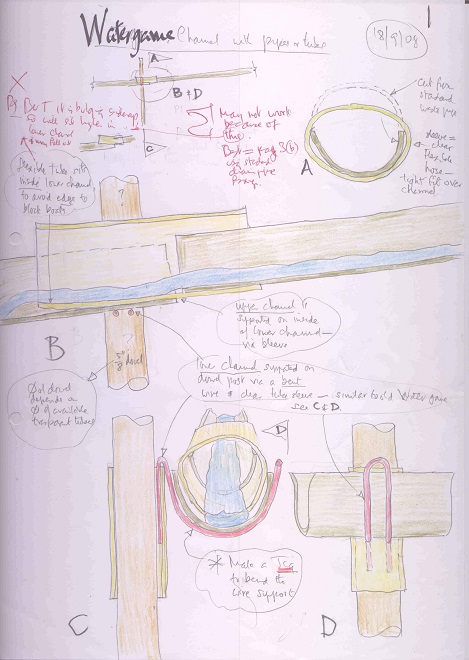 Watergame Channel with pipes or tubes
1
18/9/08
A
B & D
C
BUT it is
lower channel
May not work
because of
this.
Best =
use standard
drain pipe
Cut from
standard
waste pipe
sleeve =
clear
flexible
hose —
tight fit over
channel.
A
flexible tube sits
inside lower channel
to avoid edge to
block boats
?
upper channel is
supported on inside
of lower channel —
via sleeve
B
?
dowel
Ø of dowel
depends on
Ø of available
transparent tubes
channel supported on
dowel post via a bent
wire & clear tube sleeve — similar to old water game
see C & D.
D
* Make a Jig
to bend the
wire support
C
D